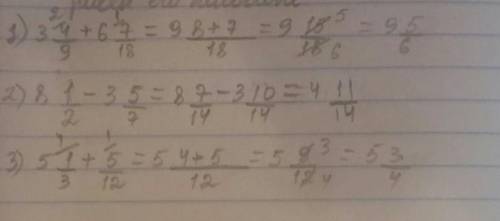 1) 3 4/9 + 6 7/18 = 9 8+7/18 = 9 15/18 5/6 = 9 5/6
2) 8 1/2 - 3 5/7 = 8 7/14 - 3 10/14 = 4 11/14
3) 5 1/3 + 5/12 = 5 4+5/12 = 5 9/12 3/4 = 5 3/4